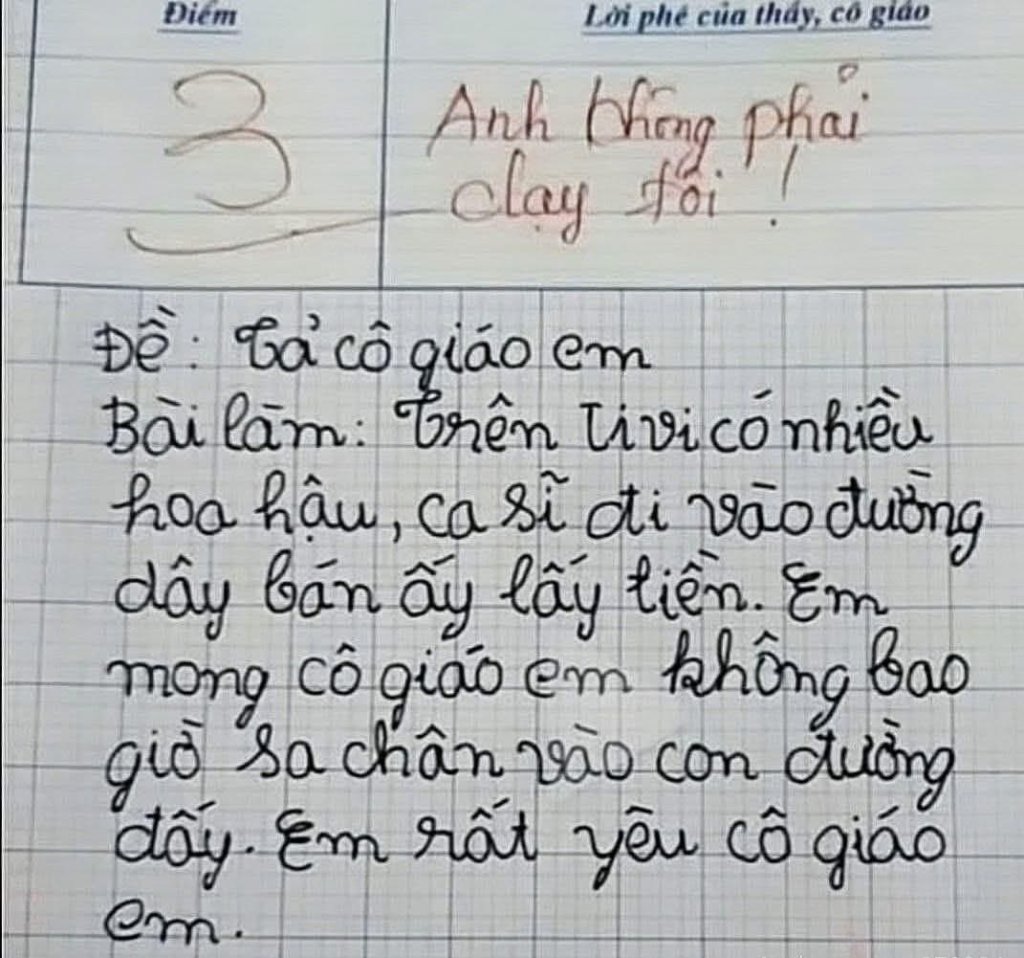 Điểm
Lời phê của thầy, cô giáo
3
Anh không phải
dạy tôi !
Đề: Tả cô giáo em
Bài làm: Trên Tivi có nhiều
hoa hậu, ca sĩ đi vào đường
dây bán ấy lấy tiền. Em
mong cô giáo em không bao
giờ sa chân vào con đường
đấy. Em rất yêu cô giáo
em.